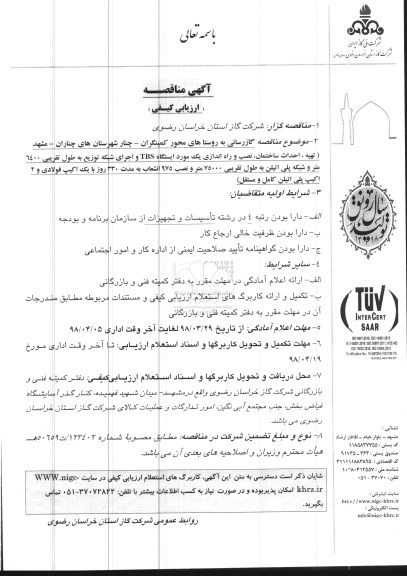 باسمه تعالی
شرکت ملی گاز ایران
شرکت گاز استان خراسان رضوی
آگهی مناقصه
( ارزیابی کیفی )
۱-مناقصه گزار: شرکت گاز استان خراسان رضوی
۲-موضوع مناقصه "گازرسانی به روستا های محور کمینگران - چنار شهرستان های چناران - مشهد
( تهیه ، احداث ساختمان، نصب و راه اندازی یک مورد ایستگاه TBS و اجرای شبکه توزیع به طول تقریبی ۶۴۰۰
متر و شبکه پلی اتیلن به طول تقریبی ۷۵۰۰۰ متر و نصب ۹۲۵ انشعاب به مدت ۳۳۰ روز با یک اکیپ فولادی و ۲
اکیپ پلی اتیلن کامل و مستقل)
۳- شرایط اولیه متقاضیان:
الف- دارا بودن رتبه ٤ در رشته تأسیسات و تجهیزات از سازمان برنامه و بودجه
ب- دارا بودن ظرفیت خالی ارجاع کار
ج- دارا بودن گواهینامه تأیید صلاحیت ایمنی از اداره کار و امور اجتماعی
۴- سایر شرایط:
الف- ارائه اعلام آمادگی در مهلت مقرر به دفتر کمیته فنی و بازرگانی
ب- تکمیل و ارائه کاربرگ های استعلام ارزیابی کیفی و مستندات مربوطه مطابق مندرجات
آن در مهلت مقرر به دفتر کمیته فنی و بازرگانی
۵- مهلت اعلام آمادگی: از تاریخ ۹۸/۰۳/۲۹ لغایت آخر وقت اداری ۹۸/۰۴/۰۵
۶- مهلت تکمیل و تحویل کاربرگها و اسناد استعلام ارزیابی: تا آخر وقت اداری مورخ
۹۸/۰۴/۱۹
۷- محل دریافت و تحویل کاربرگها و اسناد استعلام ارزیابی‌کیفی: دفتر کمیته فنی و
بازرگانی شرکت گاز خراسان رضوی واقع درمشهد- میدان شهید فهمیده، کنار گذر آسایشگاه
فیاض بخش، جنب مجتمع آبی نگین، امور تدارکات و عملیات کالای شرکت گاز استان خراسان
رضوی می باشد.
۸- نوع و مبلغ تضمین شرکت در مناقصه: مطابق مصوبة شماره ۱۲۳۴۰۲/ت۵۰۶۵۹هـ
هیأت محترم وزیران و اصلاحیه های بعدی آن می باشد.
شایان ذکر است دسترسی به متن این آگهی، کاربرگ های استعلام ارزیابی کیفی در سایت WWW.nigc-
khrz.ir امکان پذیربوده و در صورت نیاز به کسب اطلاعات بیشتر با تلفن: ۳۷۰۷۲۸۲۲-۰۵۱ تماس
بگیرید.
روابط عمومی شرکت گاز استان خراسان رضوی
TÜV
INTERCERT
SAAR
نشانی :
مشهد - بلوار خیام - ارشاد
صندوق پستی :
تلفن : ۳۷۰۷۰-۰۵۱
سایت اینترنتی :
http://www.nigc-khrz.ir
پست الکترونیکی :
info@nigc-khrz.ir